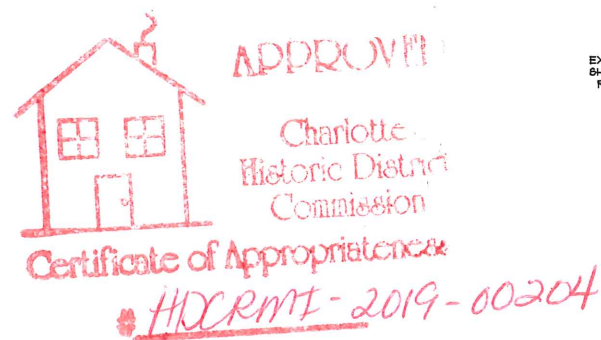 APPROVED
Charlotte
Historic District
Commission
Certificate of Appropriateness
# HDCRMI-2019-00204